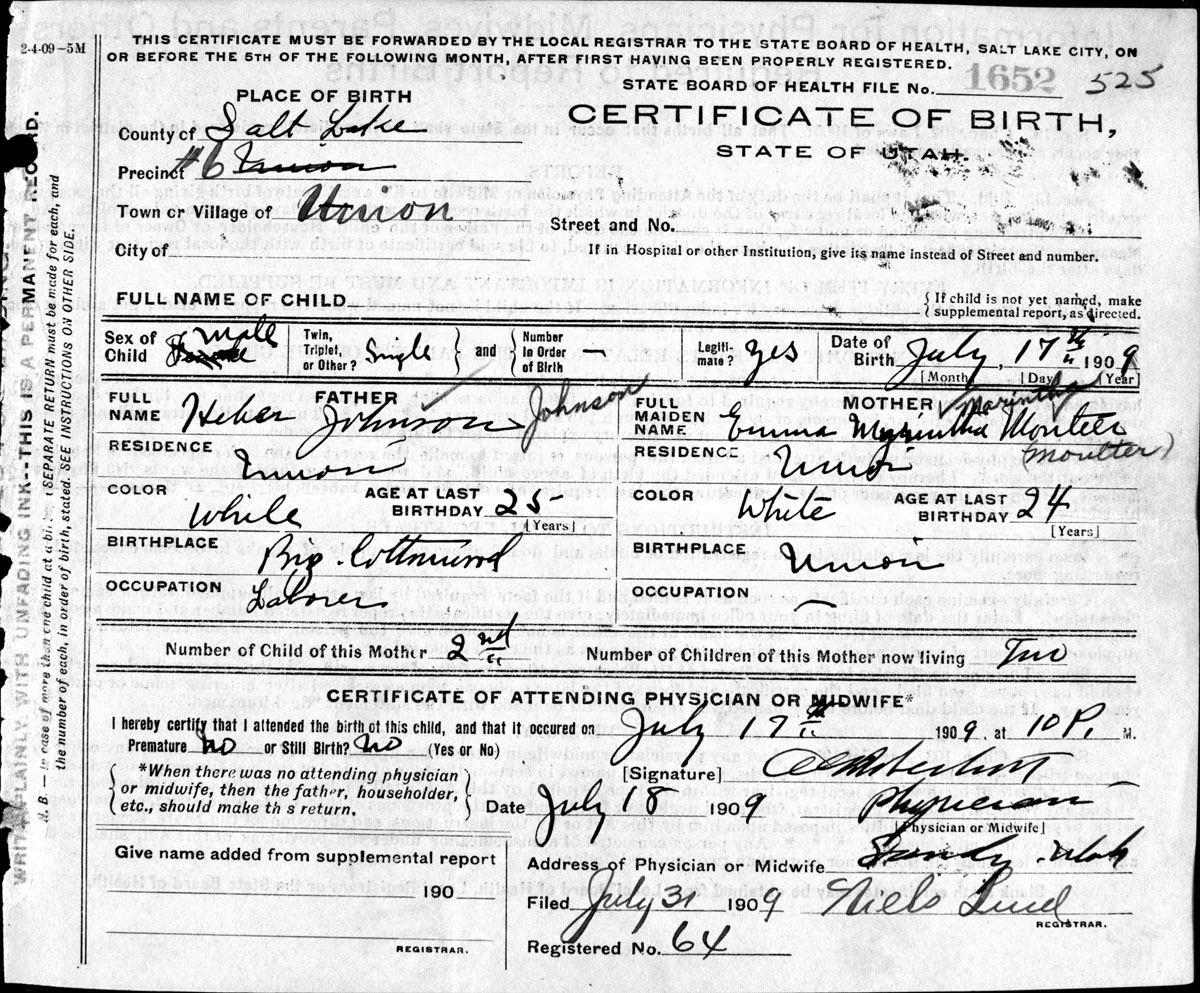 2-4-09-5M
THIS CERTIFICATE MUST BE FORWARDED BY THE LOCAL REGISTRAR TO THE STATE BOARD OF HEALTH, SALT LAKE CITY, ON
OR BEFORE THE 5TH OF THE FOLLOWING MONTH, AFTER FIRST HAVING BEEN PROPERLY REGISTERED.
STATE BOARD OF HEALTH FILE No. 1652 525
PLACE OF BIRTH
CERTIFICATE OF BIRTH,
STATE OF UTAH.
County of Salt Lake
Precinct #6 Union
Town or Village of Union
Street and No.
City of
If in Hospital or other Institution, give its name instead of Street and number.
FULL NAME OF CHILD
{ If child is not yet named, make
supplemental report, as directed.
Sex of Child male Female
Twin, Triplet, or Other? Single } and { Number in Order of Birth
Legiti-mate? yes
Date of Birth July, 17th 1909
[Month] [Day] [Year]
FATHER
FULL NAME Heber Johnson Johnson
RESIDENCE Union
COLOR White
AGE AT LAST BIRTHDAY 25
[Years]
BIRTHPLACE Big Cottonwood
OCCUPATION Laborer
MOTHER Marintha
FULL MAIDEN NAME Emma Myrintha
(Moutter)
RESIDENCE Union
COLOR White
AGE AT LAST BIRTHDAY 24
[Years]
BIRTHPLACE Union
OCCUPATION —
Number of Child of this Mother 2nd
Number of Children of this Mother now living Two
CERTIFICATE OF ATTENDING PHYSICIAN OR MIDWIFE*
I hereby certify that I attended the birth of this child, and that it occured on July 17th 1909, at 10 P. M.
Premature No or Still Birth? No (Yes or No)
{ *When there was no attending physician
or midwife, then the father, householder,
etc., should make this return. }
[Signature]
Date July 18 1909 Physician
[Physician or Midwife]
Give name added from supplemental report
190
REGISTRAR.
Address of Physician or Midwife Sandy Utah
Filed July 31 1909 Niels Lind
REGISTRAR.
Registered No. 64
WRITE PLAINLY WITH UNFADING INK--THIS IS A PERMANENT RECORD.
N. B. — In case of more than one child at a birth, a SEPARATE RETURN must be made for each, and
the number of each, in order of birth, stated. SEE INSTRUCTIONS ON OTHER SIDE.